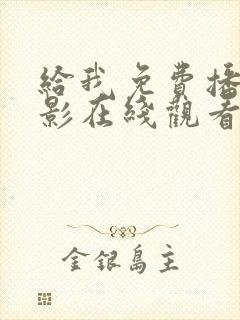 給我免費播
影在綫觀看
金銀島主